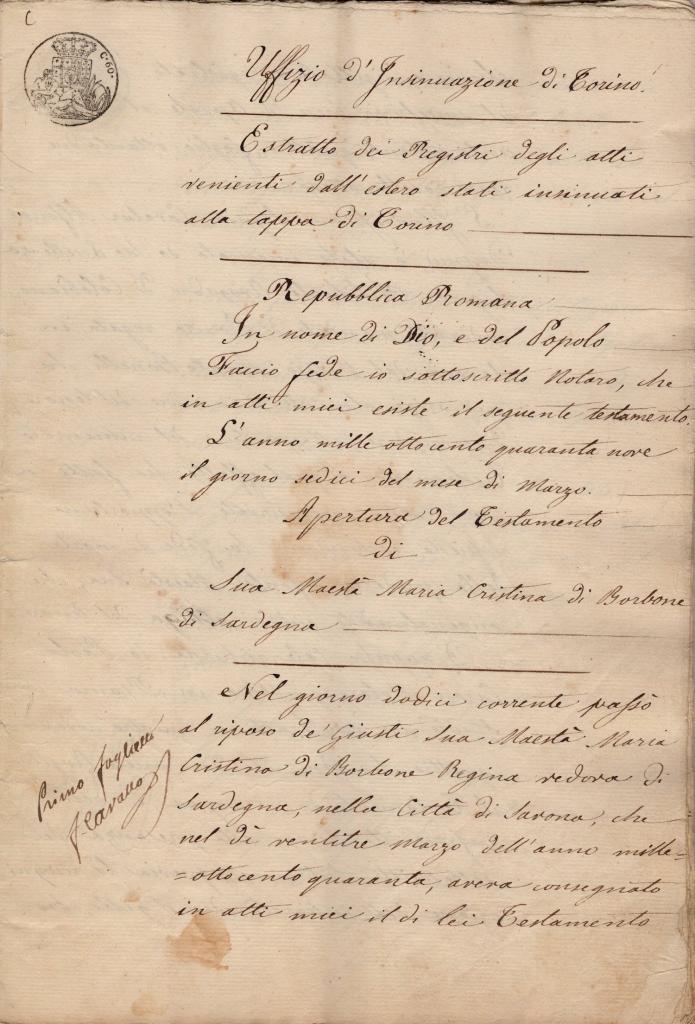 C
C. 60.
Uffizio d'Insinuazione di Torino.
Estratto dei Registri degli atti
venienti dall'estero stati insinuati
alla tappa di Torino
Repubblica Romana
In nome di Dio, e del Popolo
Faccio fede io sottoscritto Notaro, che
in atti miei esiste il seguente testamento.
L'anno mille ottocento quaranta nove
il giorno sedici del mese di Marzo.
Apertura del Testamento
di
Sua Maestà Maria Cristina di Borbone
di Sardegna
Nel giorno dodici corrente passò
al riposo de' Giusti Sua Maestà Maria
Cristina di Borbone Regina vedova di
Sardegna, nella Città di Savona, che
nel dì ventitre Marzo dell'anno mille=
=ottocento quaranta, aveva consegnato
in atti miei il di lei Testamento
Primo foglietto